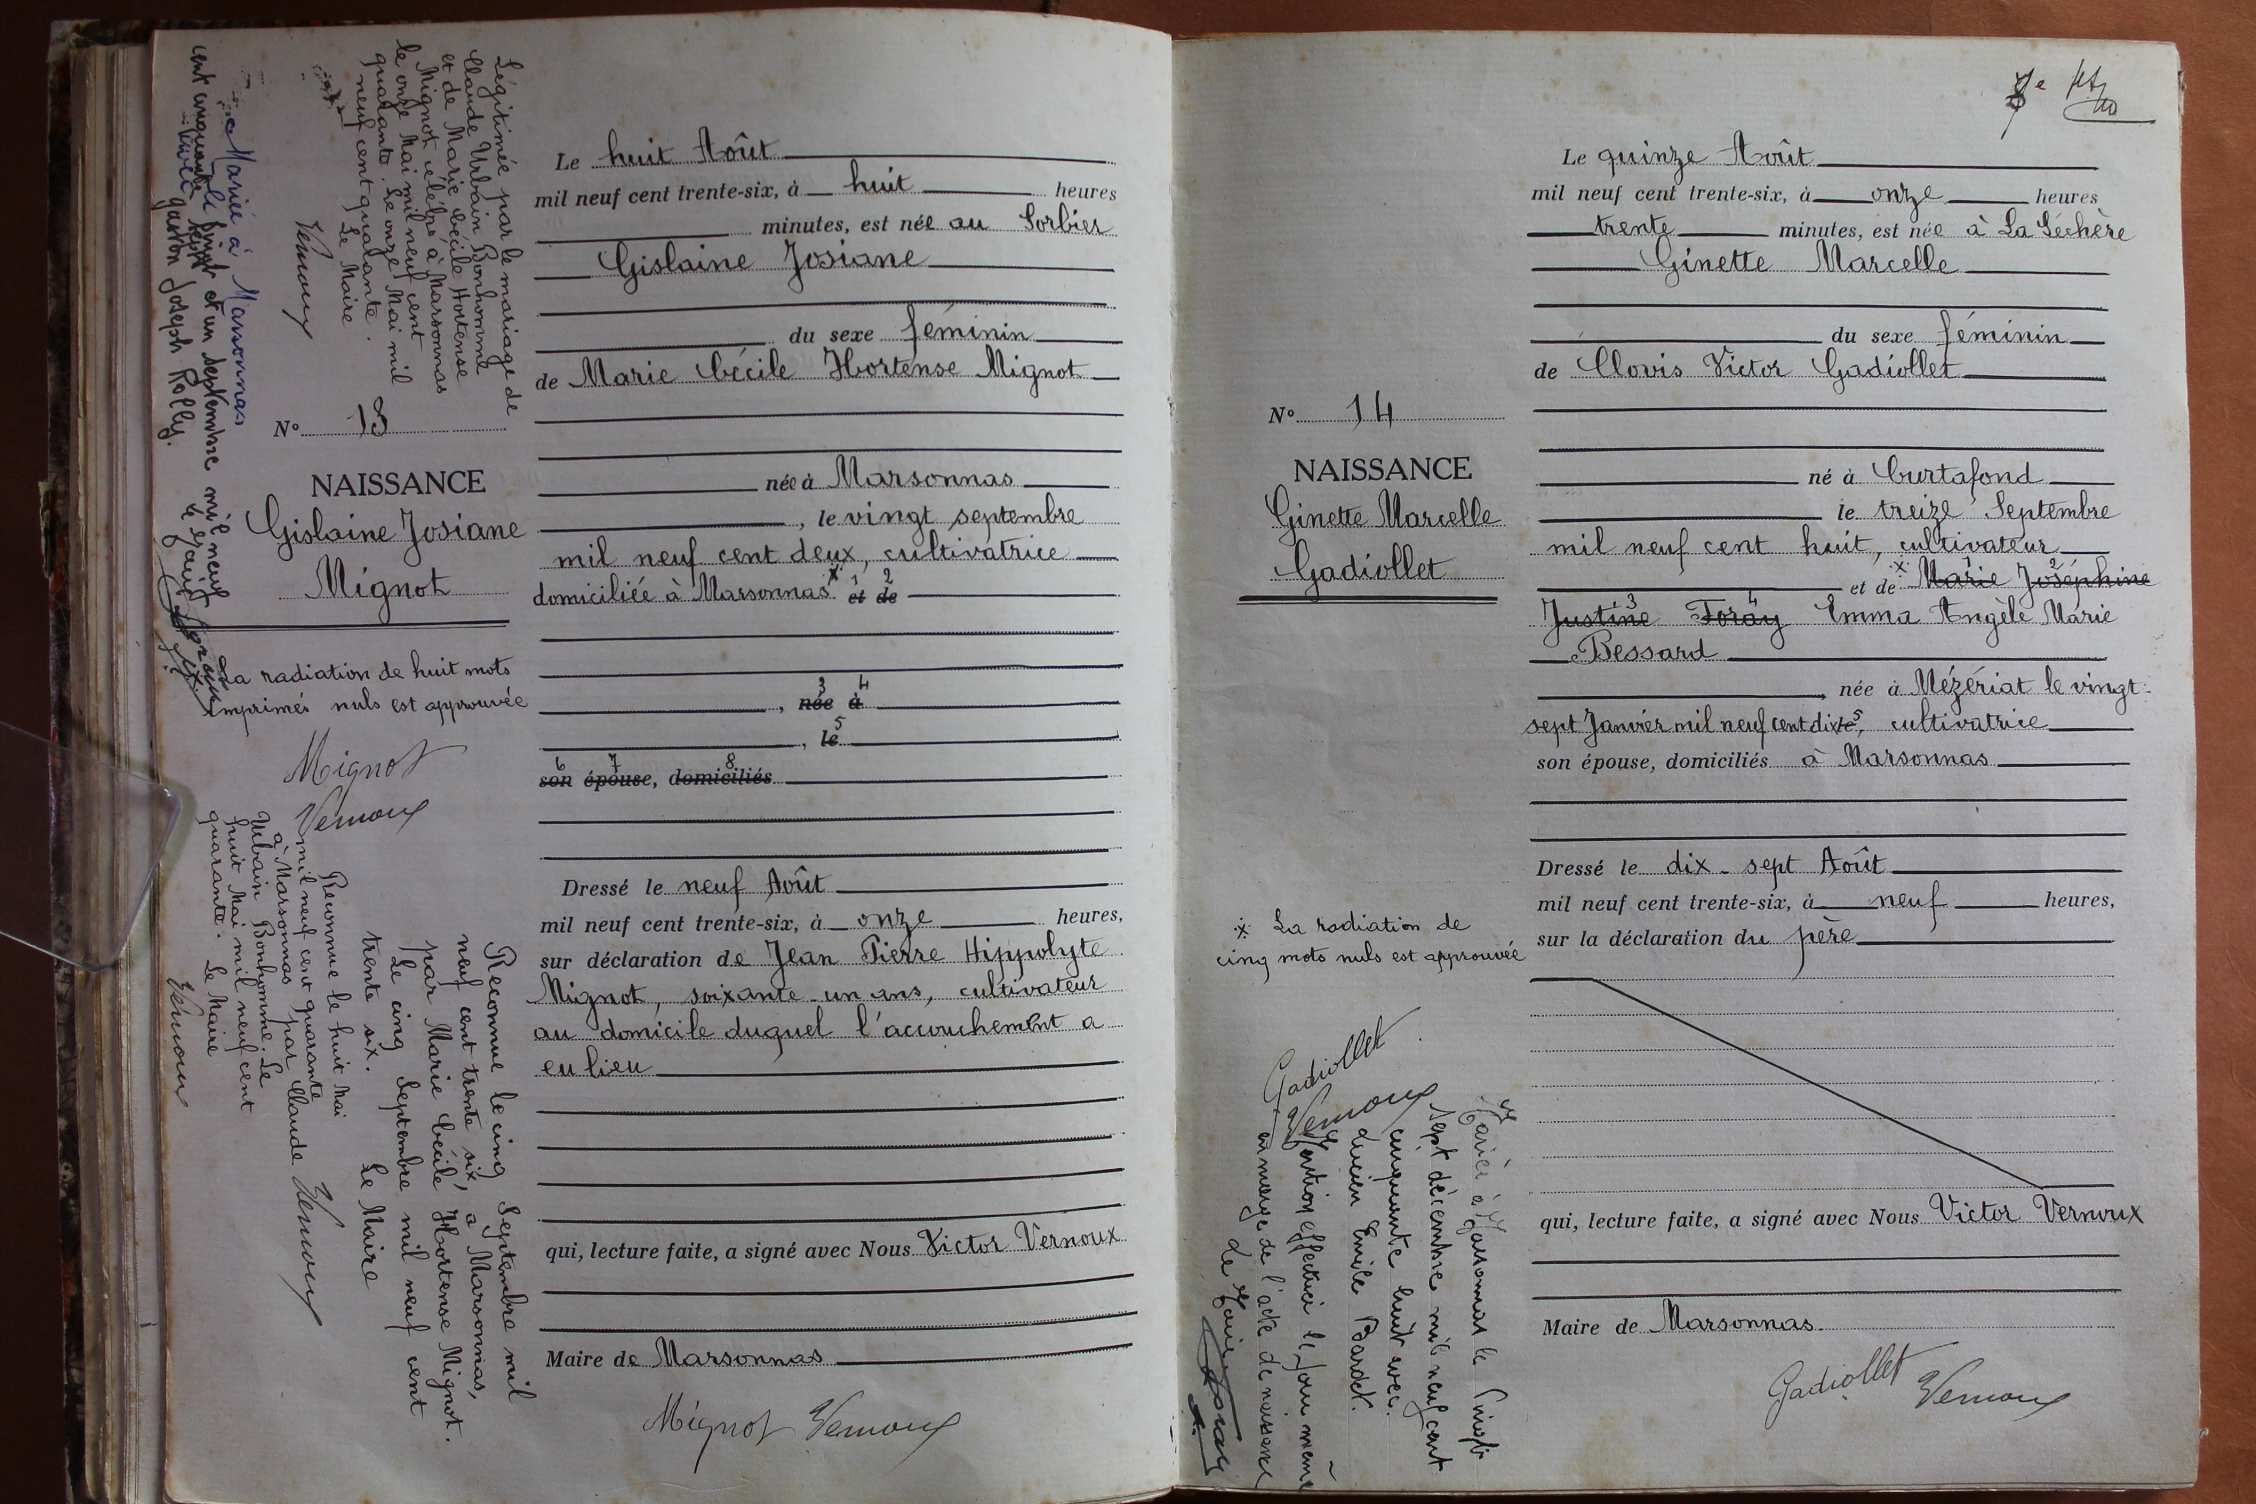 Légitimée par le mariage de
Claude Urbain Bonhomme
et de Marie Cécile Hortense
Mignot célébré à Marsonnas
le onze Mai mil neuf cent
quarante. Le onze Mai mil
neuf cent quarante.
Le Maire
Vernoux
Mariée à Marsonnas
le vingt et un septembre mil neuf
cent cinquante sept
avec gaston Joseph Rolly.
Le Maire
N° 13
NAISSANCE
Gislaine Josiane
Mignot
La radiation de huit mots
imprimés nuls est approuvée
Mignot
Vernoux
Reconnue le huit Mai
mil neuf cent quarante
à Marsonnas par Claude
Urbain Bonhomme. Le
huit Mai mil neuf cent
quarante. Le Maire
Vernoux
Reconnue le cinq Septembre mil
neuf cent trente six, à Marsonnas,
par Marie Cécile Hortense Mignot.
Le cinq Septembre mil neuf cent
trente six. Le Maire
Vernoux
Le huit Août
mil neuf cent trente-six, à huit heures
minutes, est née au Sorbier
Gislaine Josiane
du sexe féminin
de Marie Cécile Hortense Mignot
née à Marsonnas
, le vingt septembre
mil neuf cent deux, cultivatrice
domiciliée à Marsonnas x et 1 de 2
, née 3 à 4
, le 5
son 6 épouse 7, domiciliés 8
Dressé le neuf Août
mil neuf cent trente-six, à onze heures,
sur déclaration de Jean Pierre Hippolyte
Mignot, soixante-un ans, cultivateur
au domicile duquel l'accouchement a
eu lieu
qui, lecture faite, a signé avec Nous Victor Vernoux
Maire de Marsonnas
Mignot Vernoux
N° 14
NAISSANCE
Ginette Marcelle
Gadiollet
La radiation de
cinq mots nuls est approuvée
Gadiollet
Vernoux
Mariée à Marsonnas le vingt
sept décembre mil neuf cent
cinquante huit avec
Lucien Emile Bardet.
Mention effectuée le jour même
en marge de l'acte de naissance
Le Maire
Le quinze Août
mil neuf cent trente-six, à onze heures
trente minutes, est née à La Léchère
Ginette Marcelle
du sexe féminin
de Clovis Victor Gadiollet
né à Curtafond
le treize Septembre
mil neuf cent huit, cultivateur
et de x Marie 1 Joséphine 2
Justine 3 Foray 4 Emma Angèle Marie
Bessard
, née à Mézériat le vingt-
sept Janvier mil neuf cent dix le 5, cultivatrice
son épouse, domiciliés à Marsonnas
Dressé le dix-sept Août
mil neuf cent trente-six, à neuf heures,
sur la déclaration du père
qui, lecture faite, a signé avec Nous Victor Vernoux
Maire de Marsonnas
Gadiollet Vernoux